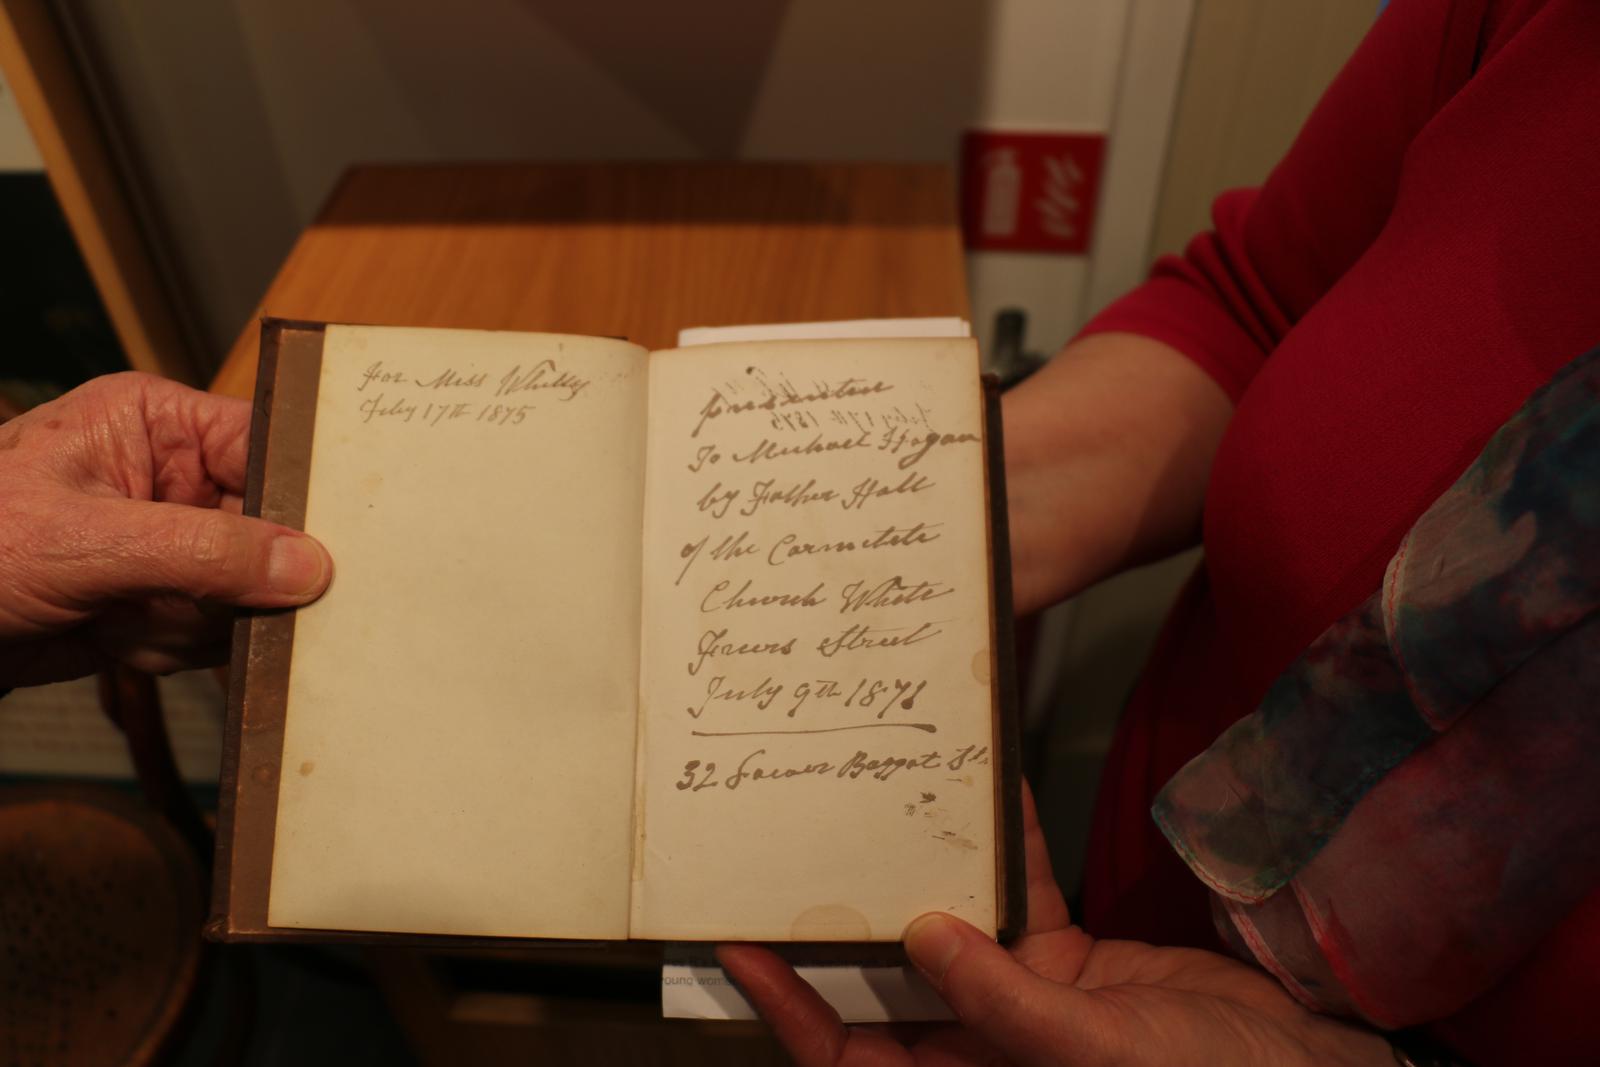 For Miss
Feby 17th 1875
presented
To Michael Hogan
by Father Hall
of the Carmelete
Church White
Friers Street
July 9th 1871
32 Lower Baggot St.
young wome